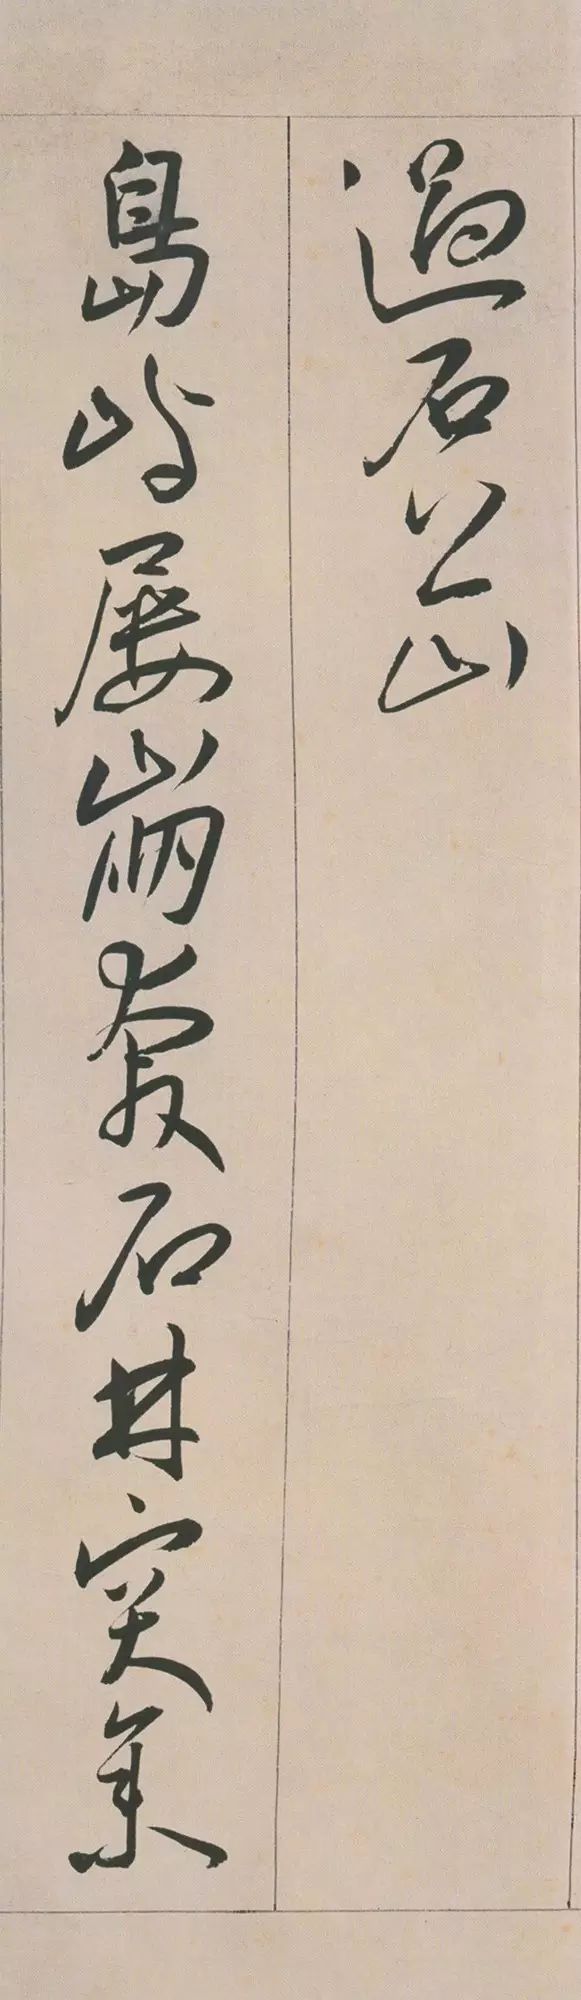 過石公山
島嶼屢崩奔石林突